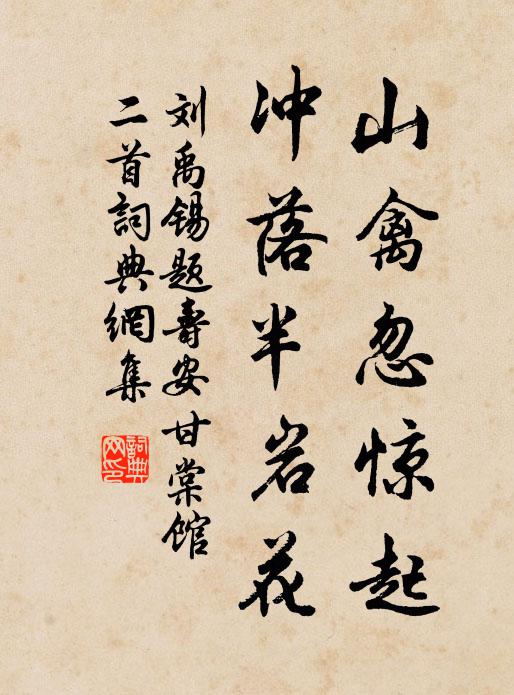 山禽忽惊起
冲落半岩花
刘禹锡题寿安甘棠馆
二首詞典網集
詞典
网印